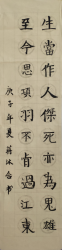 生當作人傑死亦為鬼雄
至今思項羽不肯過江東
庚子年夏蒋沐台書